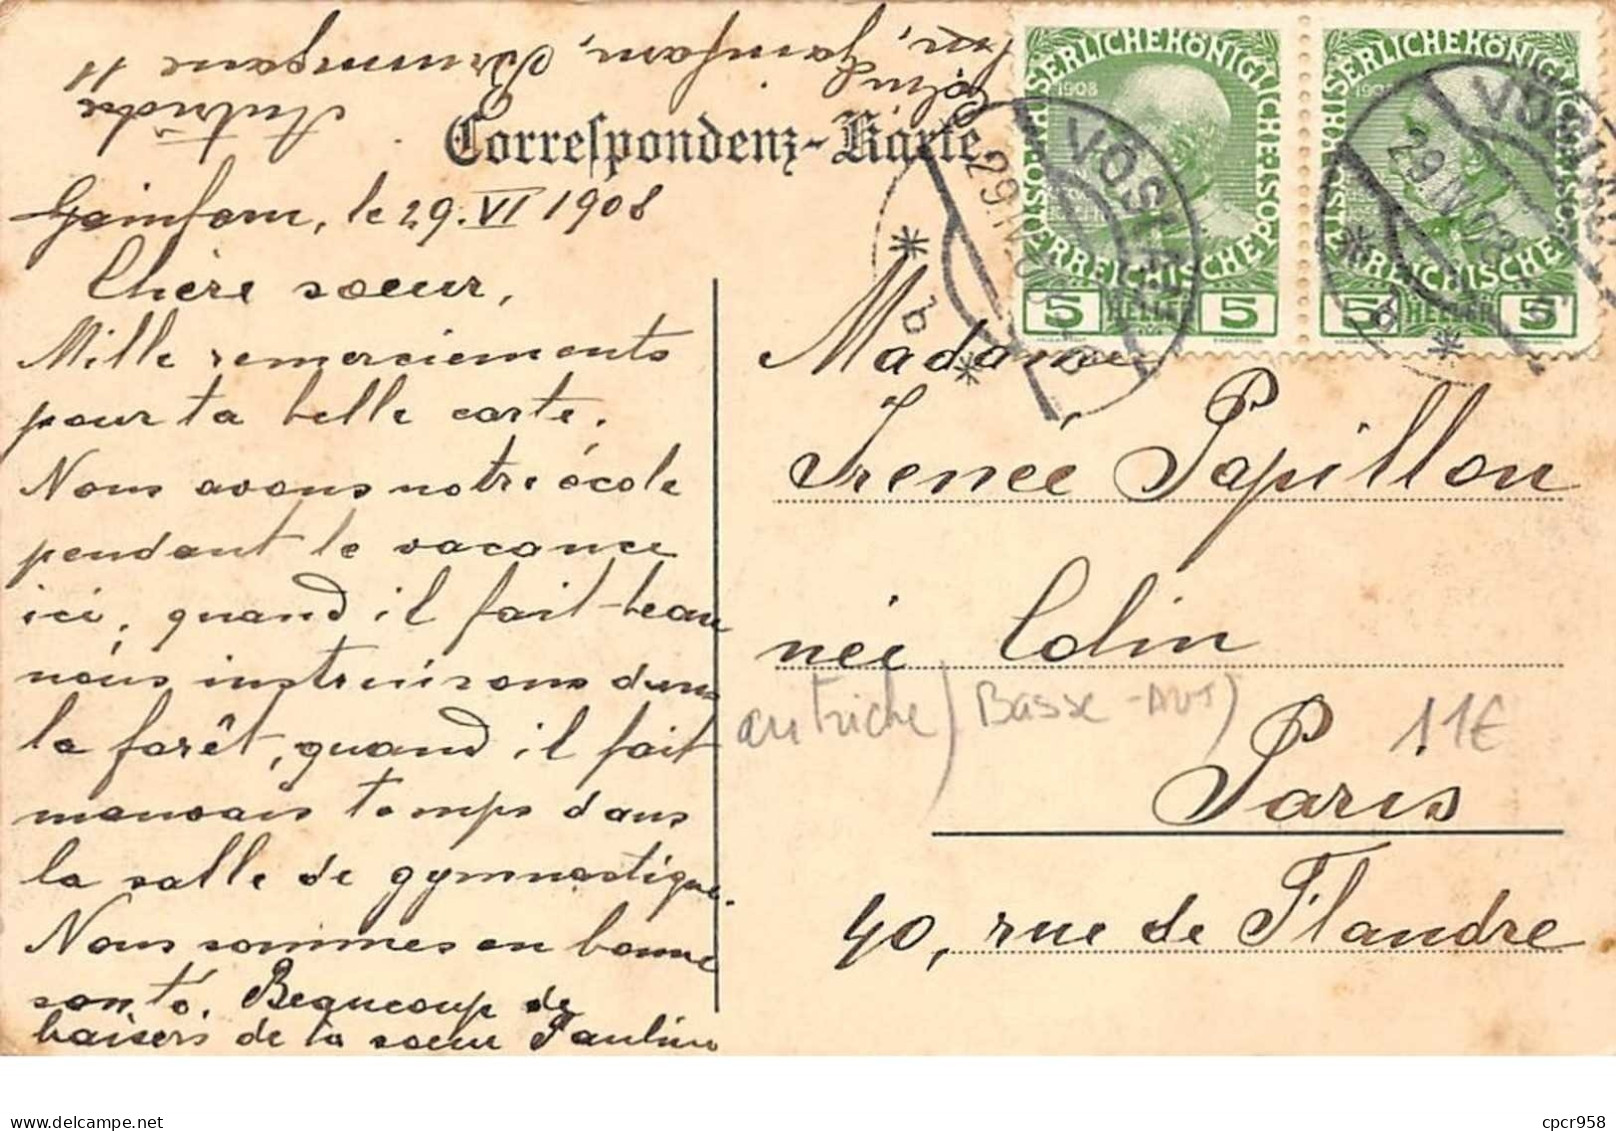 Autriche
Gainfarn, Brunngasse 11
Colin
Correspondenz-Karte
Gainfarn, le 29. VI 1908
Chère sœur,
Mille remerciements
pour ta belle carte.
Nous avons notre école
pendant le vacance
ici, quand il fait beau
nous instruisons dans
la forêt, quand il fait
mauvais temps dans
la salle de gymnastique.
Nous sommes en bonne
santé. Beaucoup de
baisers de ta sœur Pauline
KAISERLICHE KÖNIGLICHE ÖSTERREICHISCHE POST
1908
5 HELLER 5
KAISERLICHE KÖNIGLICHE ÖSTERREICHISCHE POST
1908
5 HELLER 5
VÖSLAU
29.IV.08
* b *
VÖSLAU
29.IV.08
* b *
Madame
Irenée Papillon
née Colin
autriche (Basse-AUT)
11€
Paris
40, rue de Flandre
www.delcampe.net
cpcr958